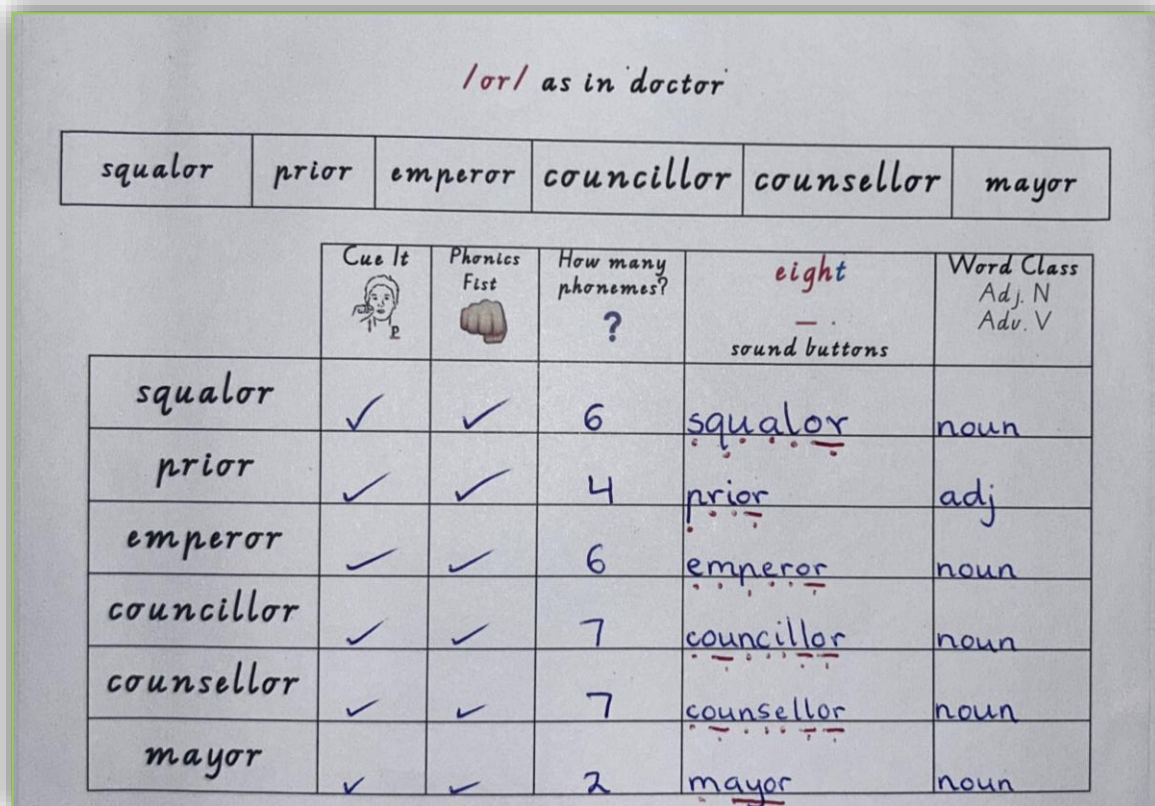 /or/ as in 'doctor'
squalor prior emperor councillor counsellor mayor
Cue It Phonics Fist How many phonemes? eight Word Class
p ? sound buttons Adj. N
Adv. V
squalor ✓ ✓ 6 squalor noun
prior ✓ ✓ 4 prior adj
emperor ✓ ✓ 6 emperor noun
councillor ✓ ✓ 7 councillor noun
counsellor ✓ ✓ 7 counsellor noun
mayor ✓ ✓ 2 mayor noun